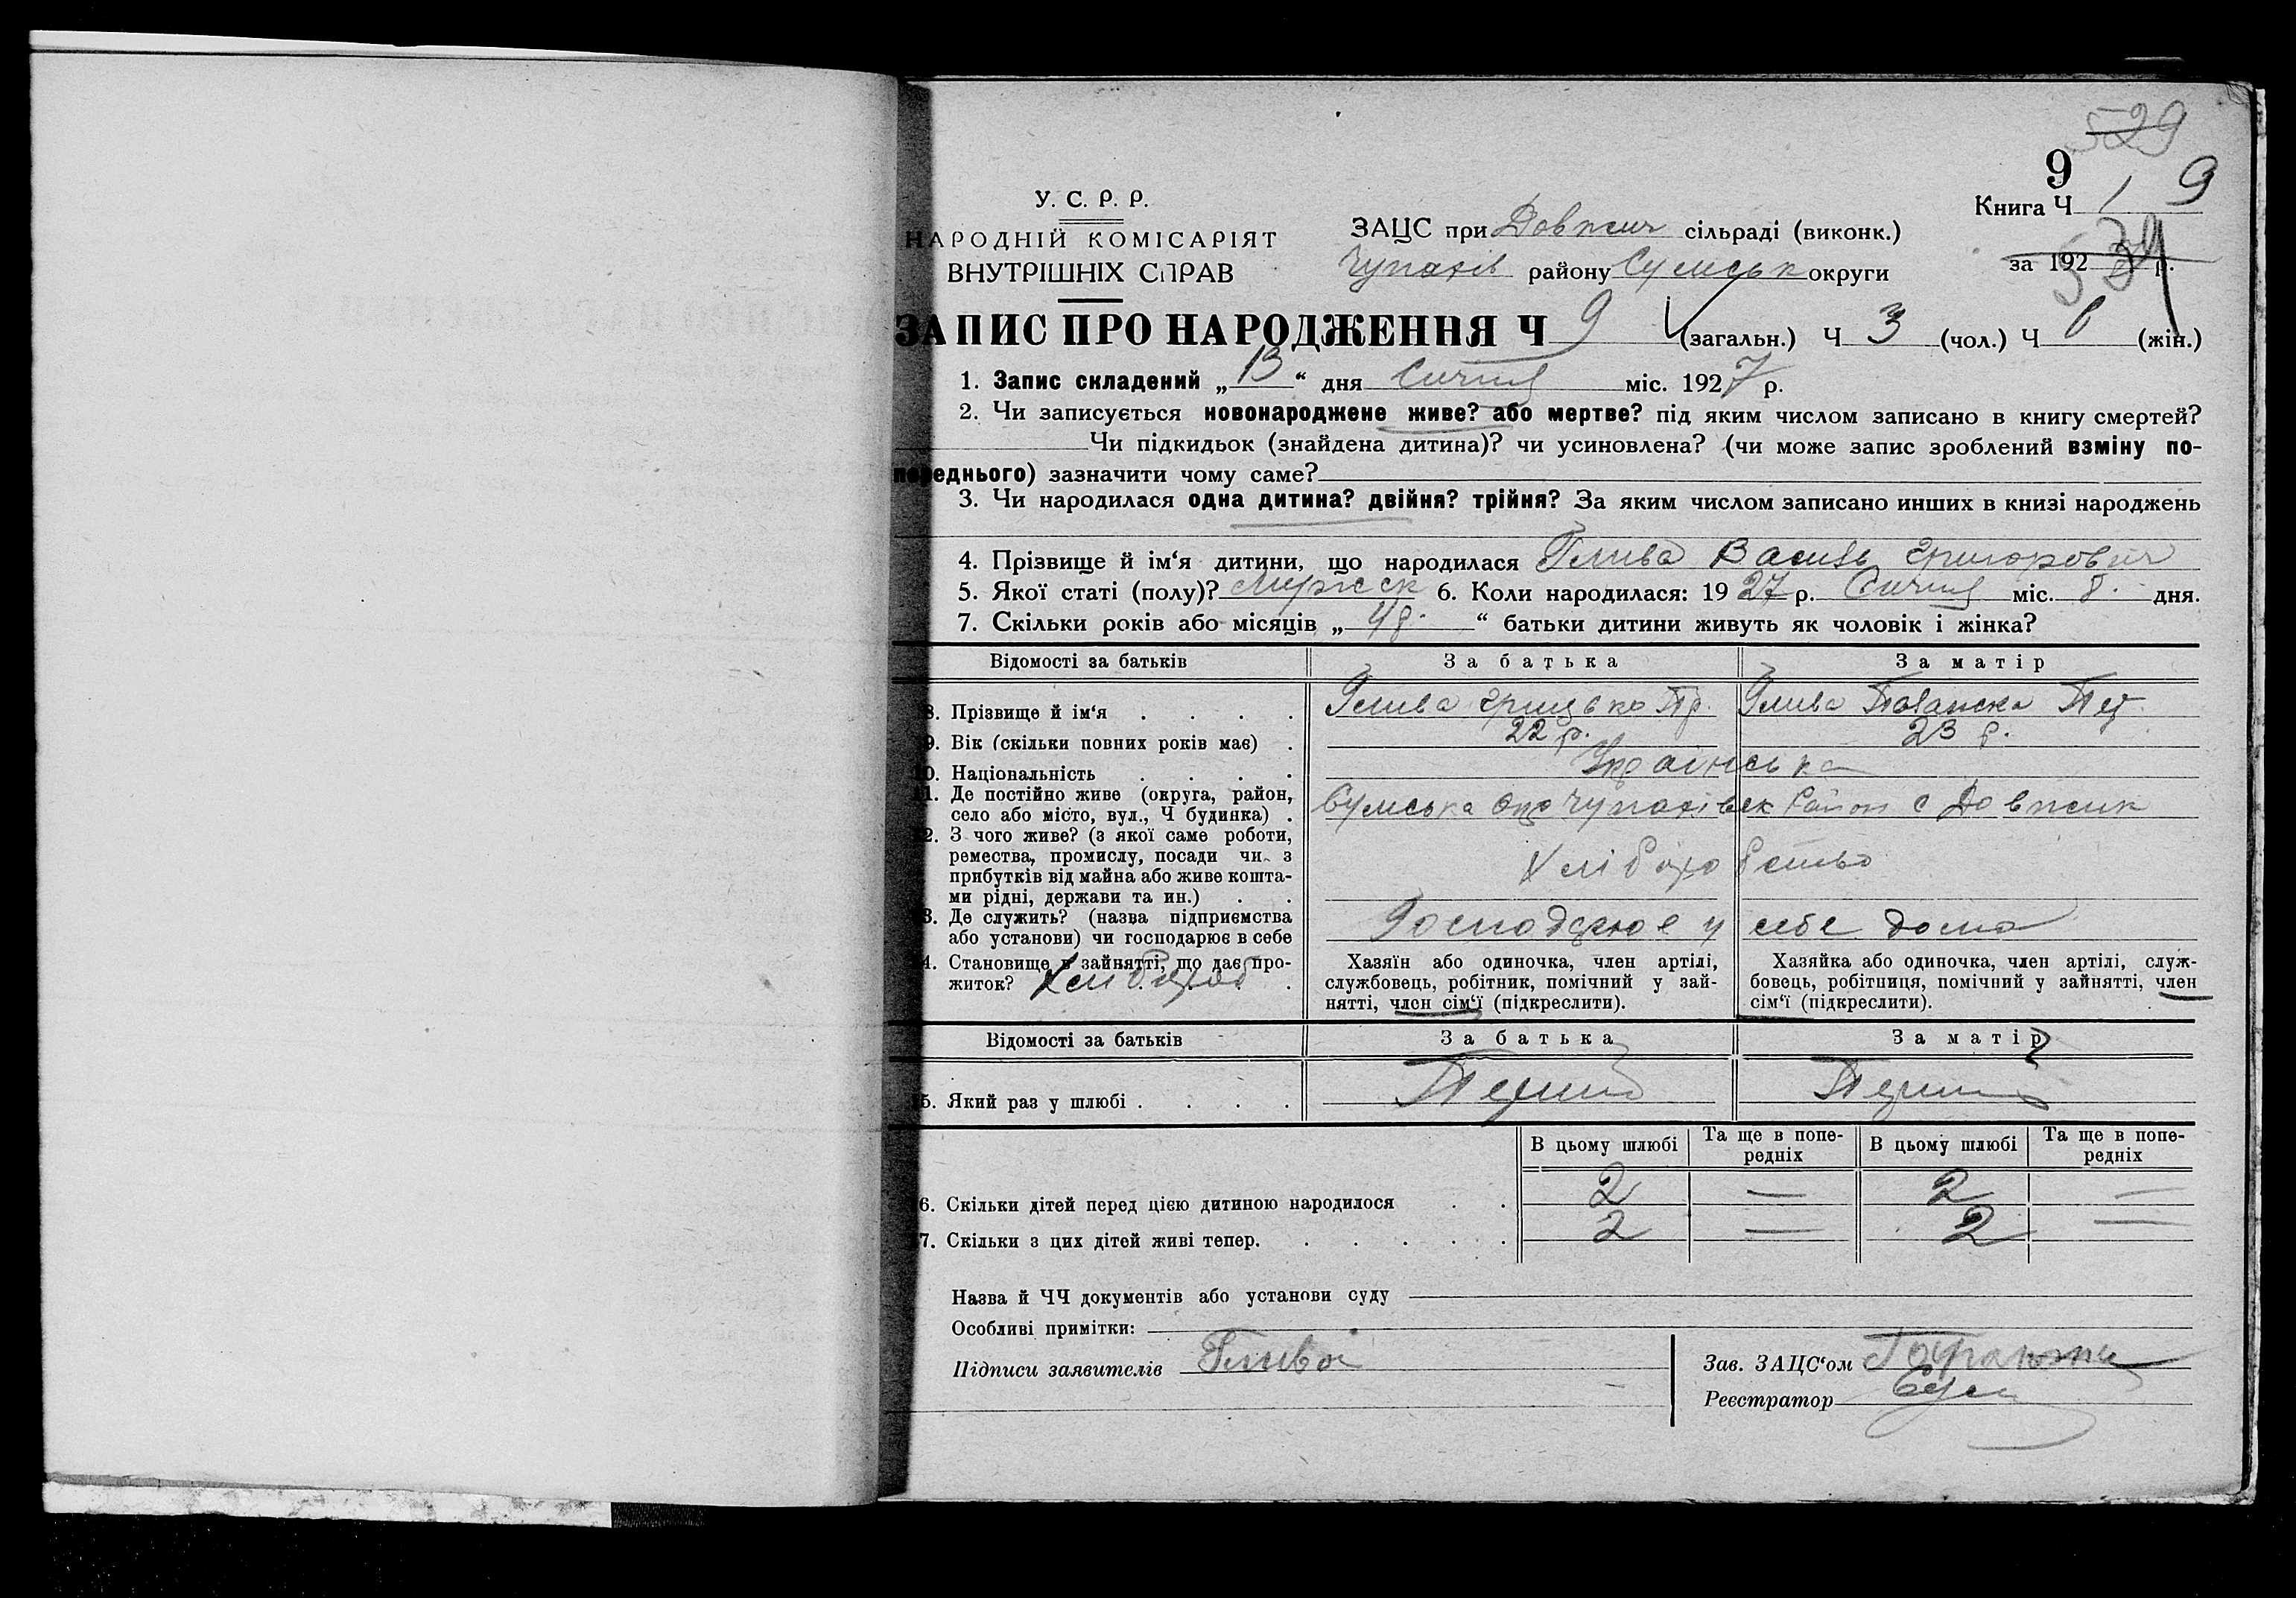 529
9
9
У. С. Р. Р.
Книга Ч 1
НАРОДНІЙ КОМІСАРІЯТ
ЗАЦС при Довжич сільраді (виконк.)
ВНУТРІШНІХ СПРАВ
Чупахів району Сумськ округи
за 192 р.
534
ЗАПИС ПРО НАРОДЖЕННЯ Ч 9 (загальн.) Ч 3 (чол.) Ч (жін.)
1. Запис складений „ 13 “ дня Січня міс. 1927 р.
2. Чи записується новонароджене живе? або мертве? під яким числом записано в книгу смертей?
Чи підкидьок (знайдена дитина)? чи усиновлена? (чи може запис зроблений взміну по-
переднього) зазначити чому саме?
3. Чи народилася одна дитина? двійня? трійня? За яким числом записано инших в книзі народжень
4. Прізвище й ім‘я дитини, що народилася Глива Василь Григорович
5. Якої статі (полу)? Мужеск 6. Коли народилася: 1927 р. Січня міс. 8. дня.
7. Скільки років або місяців „ 4 р. “ батьки дитини живуть як чоловік і жінка?
Відомості за батьків За батька За матір
8. Прізвище й ім‘я Глива Грицько Пр. Глива
9. Вік (скільки повних років має) 22 р. 23 р.
10. Національність Українська
11. Де постійно живе (округа, район,
село або місто, вул., Ч будинка) Сумська Окр Чупахівск Район с Довжик
12. З чого живе? (з якої саме роботи,
ремества, промислу, посади чи з
прибутків від майна або живе кошта-
ми рідні, держави та ин.) Хліборобство
13. Де служить? (назва підприємства
або установи) чи господарює в себе Господарює у себе дома
14. Становище в зайнятті, що дає про-
житок? Хлібороб
Хазяїн або одиночка, член артілі,
службовець, робітник, помічний у зай-
нятті, член сім‘ї (підкреслити).
Хазяйка або одиночка, член артілі, служ-
бовець, робітниця, помічний у зайнятті, член
сім‘ї (підкреслити).
Відомості за батьків За батька За матір
15. Який раз у шлюбі Перший Перший
В цьому шлюбі Та ще в попе-редніх В цьому шлюбі Та ще в попе-редніх
16. Скільки дітей перед цією дитиною народилося 2 — 2 —
17. Скільки з цих дітей живі тепер. 2 — 2 —
Назва й ЧЧ документів або установи суду
Особливі примітки:
Підписи заявителів Глива
Зав. ЗАЦС‘ом
Реєстратор